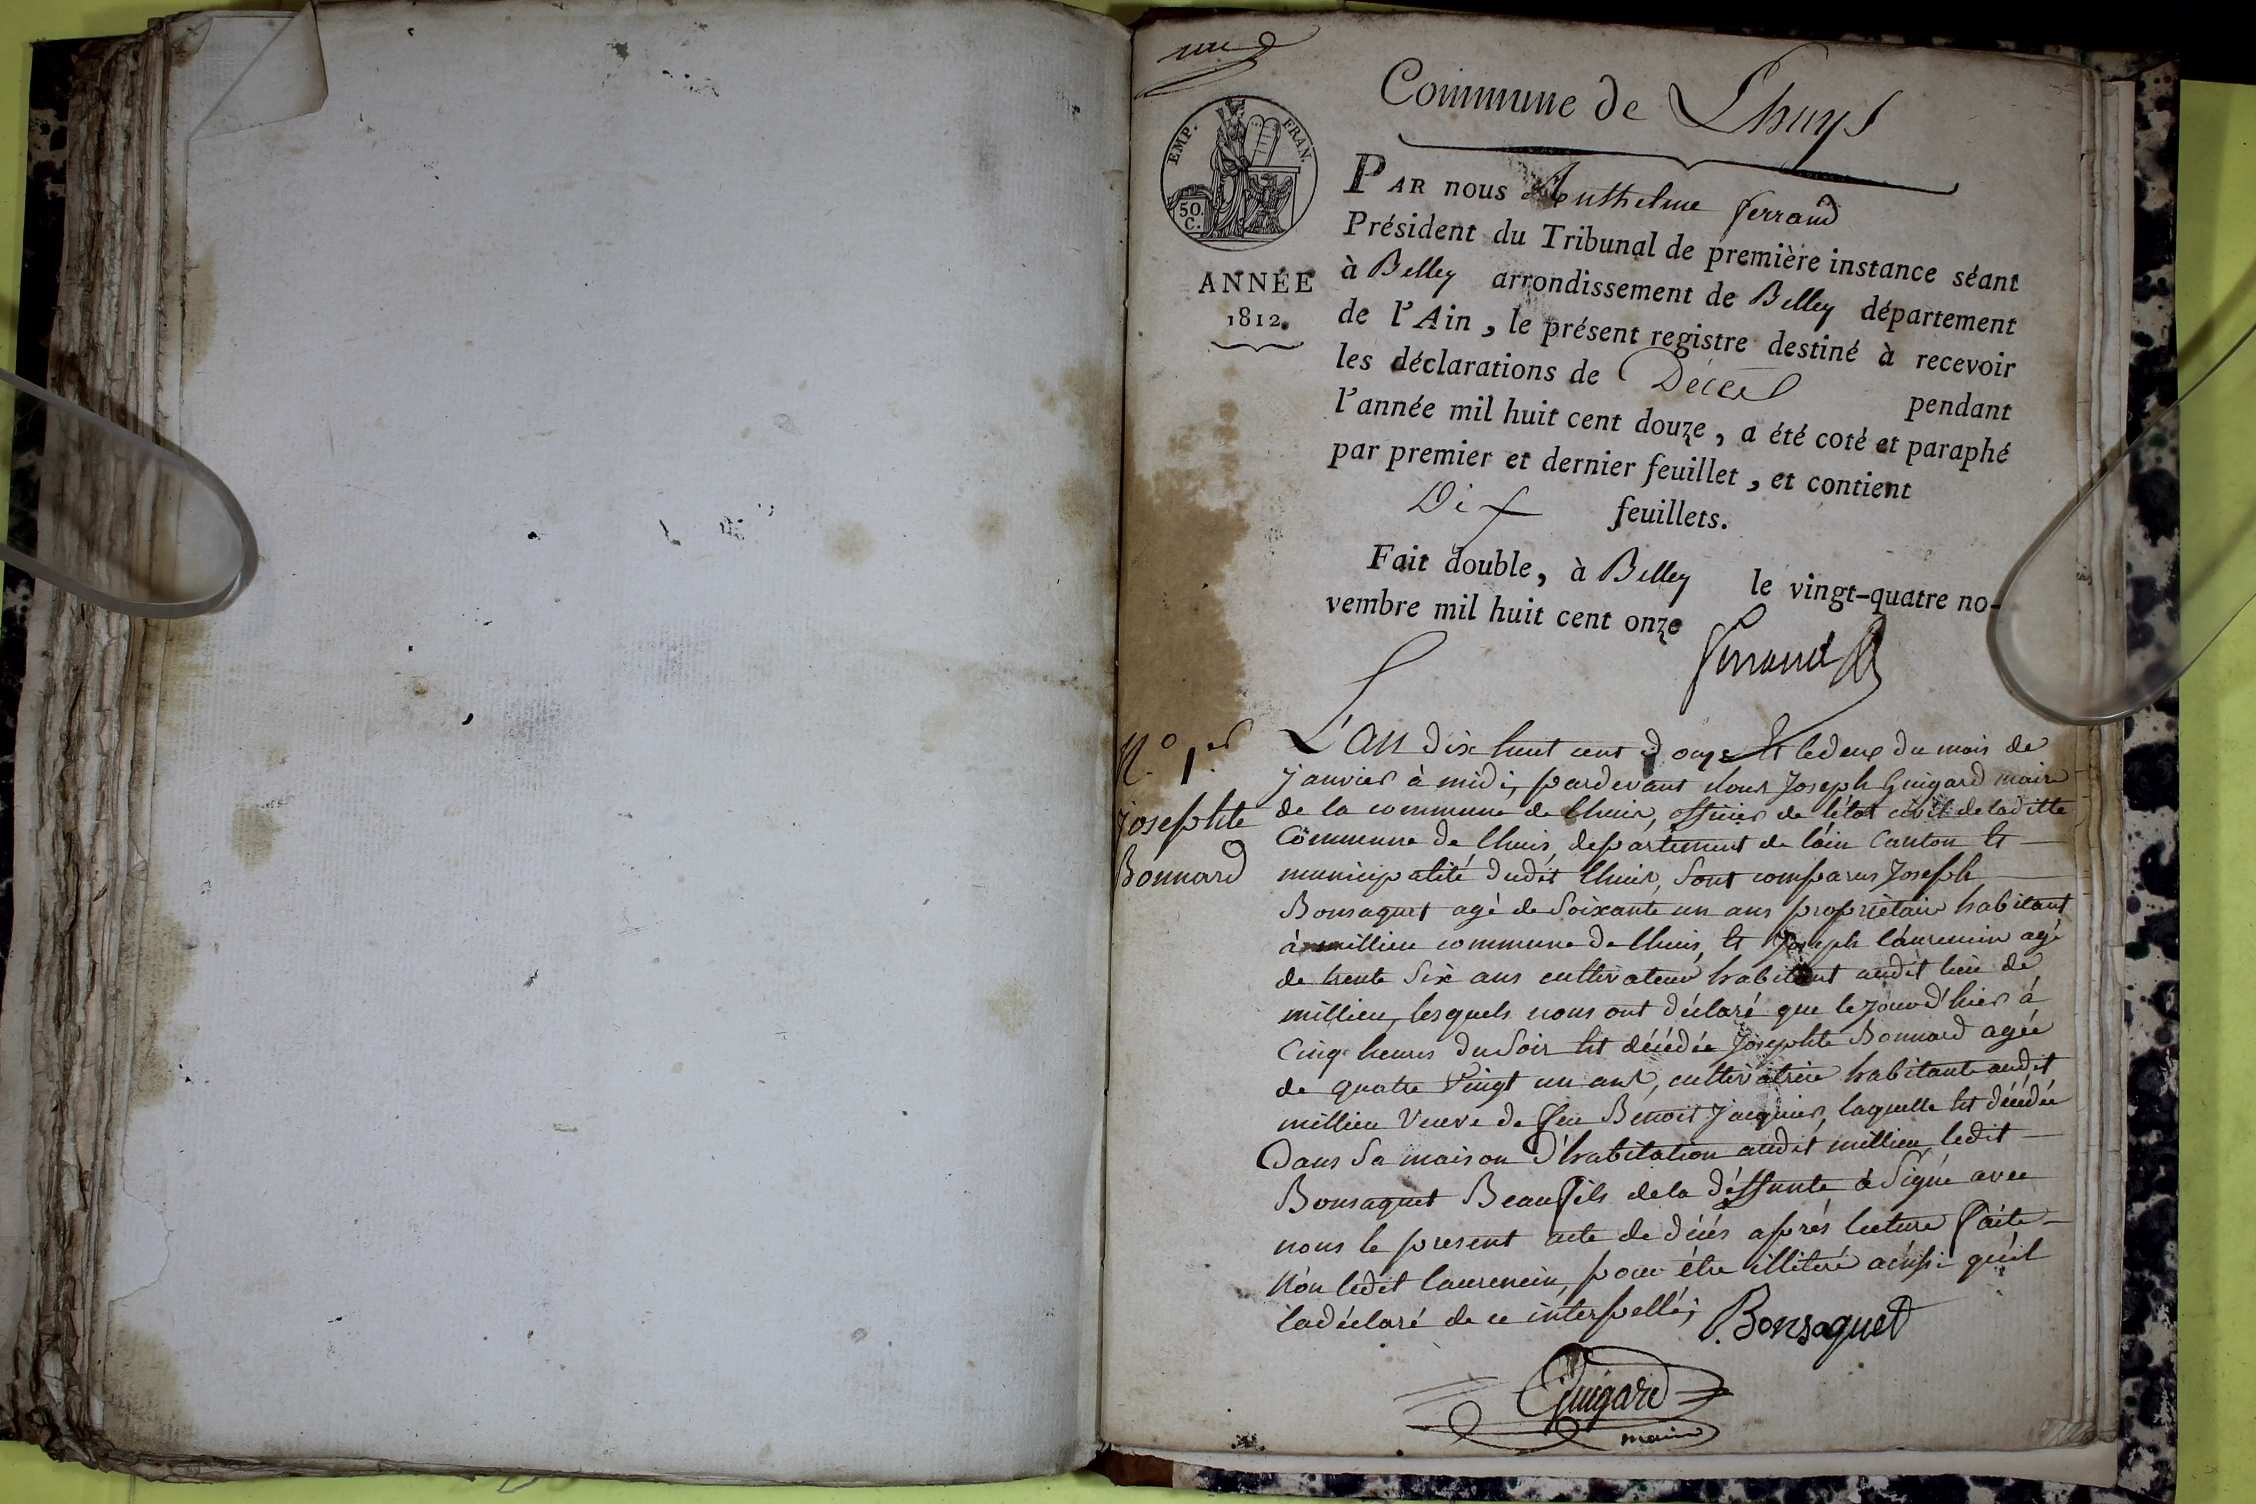 un
Commune de Lhuys
EMP. FRAN.
50. C.
ANNÉE
1812.
PAR nous Anthelme ferrand
Président du Tribunal de première instance séant
à Belley arrondissement de Belley département
de l'Ain, le présent registre destiné à recevoir
les déclarations de Décès pendant
l'année mil huit cent douze, a été coté et paraphé
par premier et dernier feuillet, et contient
Dix feuillets.
Fait double, à Belley le vingt-quatre no-
vembre mil huit cent onze
ferrand
N.o 1.er
Josephte
Bonnard
L'An dix huit cent douze Et le deux du mois de
janvier à midi, pardevant nous Joseph Guigard maire
de la commune de lhuis, officier de l'état civil de laditte
Commune de lhuis département de l'ain Canton Et
municipalité dudit lhuis, Sont comparus Joseph
Bonsaquet agé de Soixante un ans propriétaire habitant
à millieu commune de lhuis, Et Joseph laurencin agé
de trente Six ans cultivateur habitant audit lieu de
millieu, lesquels nous ont déclaré que le jour d'hier à
Cinq heures du Soir Est décédée Josephte Bonnard agée
de quatre Vingt un ans, cultivatrice habitante audit
millieu Veuve de feu Benoit jacquier, laquelle Est décédée
Dans Sa maison D'habitation audit millieu, ledit
Bonsaquet Beaufils de la déffunte à Signé avec
nous le present acte de décés aprés lecture faite
Non ledit laurencin, pour être illitéré ainsi qu'il
la déclaré de ce interpellé;
Bonsaquet
Guigard
maire